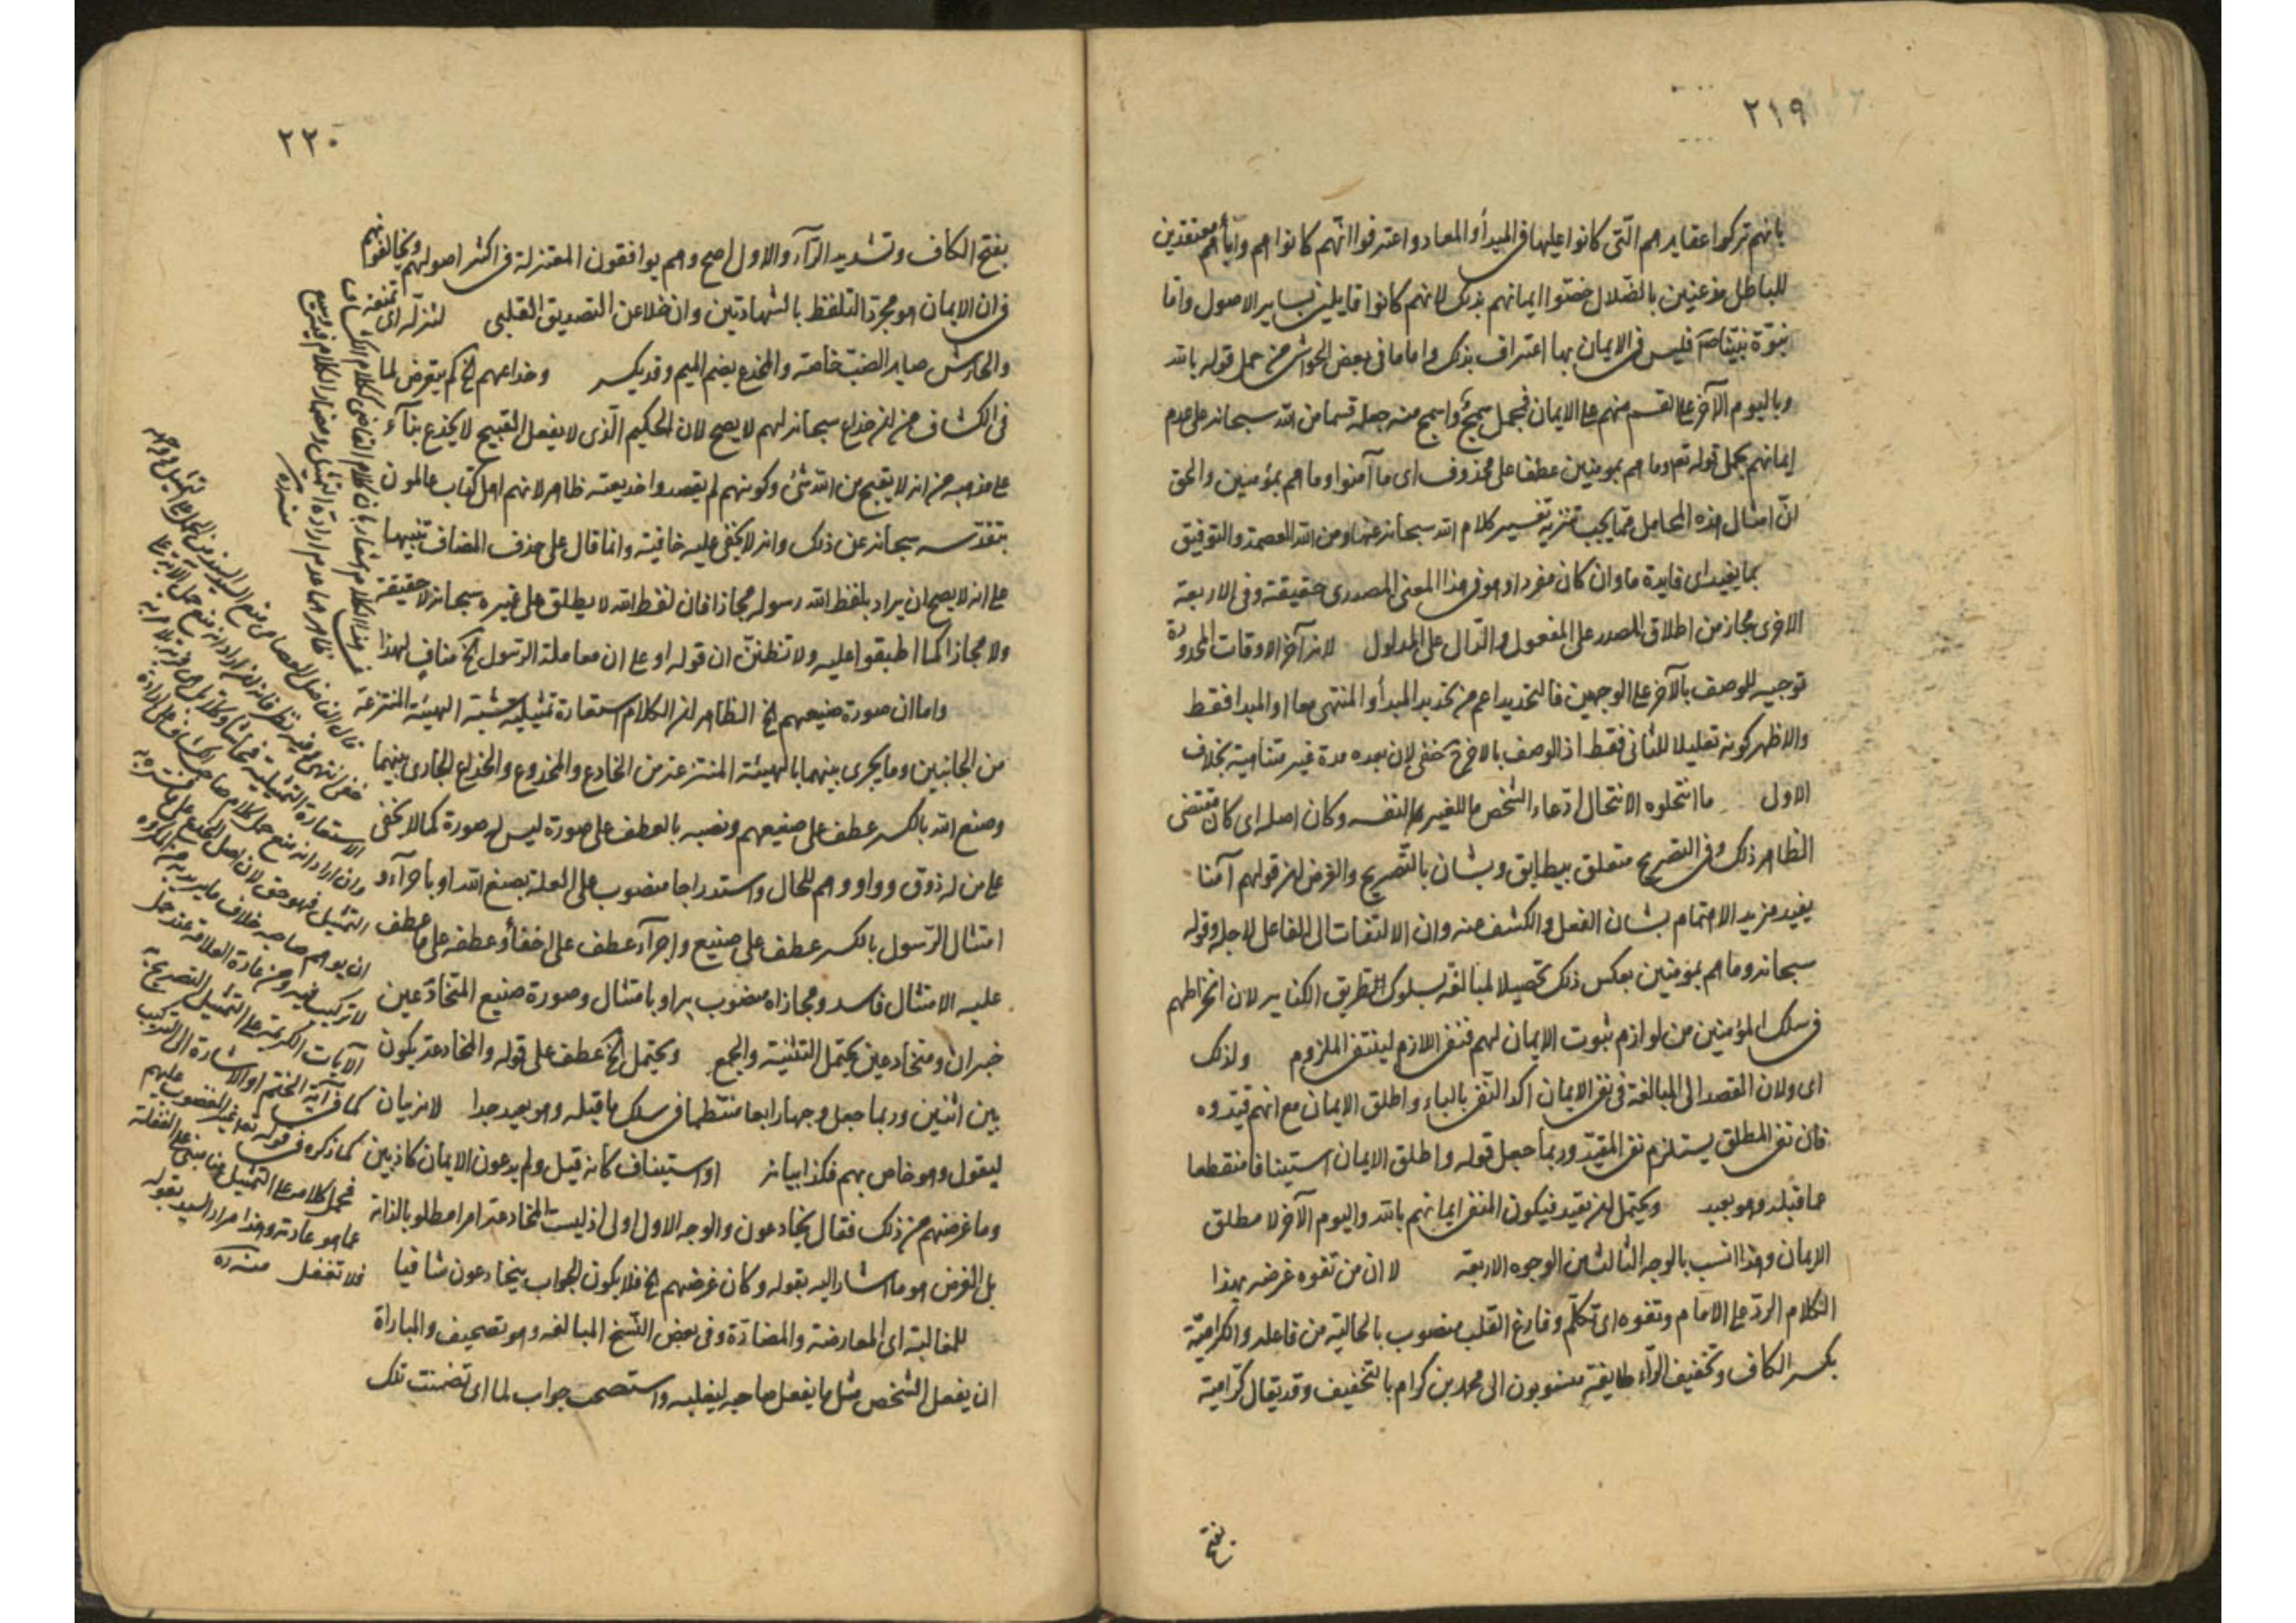 ٢١٩
بانهم تركوا عقايدهم التى كانوا عليها فى المبدأ والمعاد واعترفوا انهم كانوا هم وآباؤهم معتقدين
للباطل مذعنين بالضلال خصّوا ايمانهم بذلك لانهم كانوا قايلين بساير الاصول واما
نبوّة نبيّنا صم فليس فى الايمان بها اعتراف بذلك واما ما فى بعض الحواشى من حمل قوله بالله
وباليوم الآخر على القسم منهم على الايمان فحمل سمج واسمج منه جعله قسما من الله سبحانه على عدم
ايمانهم بجعل قوله تع وما هم بمومنين عطفا على محذوف اى ما آمنوا وما هم بمؤمنين والحق
انّ امثال هذه المحامل ممّا يجب تنزيه تفسير كلام الله سبحانه عنها ومن الله العصمة والتوفيق
بما يفيد اى فايدة ما وان كان مفردا وهو فى هذا المعنى المصدرى حقيقة وفى الاربعة
الاخرى مجاز من اطلاق المصدر على المفعول والدال على المدلول لانه آخر الاوقات المحدودة
توجيه للوصف بالآخر على الوجهين فالتحديد اعم من تحديد المبدأ والمنتهى معا او المبدا فقط
والاظهر كونه تعليلا للثانى فقط اذ الوصف بالاخر خفى لان بعده مدة غير متناهية بخلاف
الاول ما انتحلوه الانتحال ادّعاء الشخص ما للغير لنفسه وكان اصله اى كان مقتضى
الظاهر ذلك وفى التصريح متعلق بيطابق وبشان بالتصريح والغرض ان قولهم آمنا
يفيد مزيد الاهتمام بشان الفعل والكشف عنه وان الالتفات الى الفاعل لاجله وقوله
سبحانه وما هم بمؤمنين بعكس ذلك تحصيلا لمبالغة بسلوك الطريق الكنايه لان انخراطهم
فى سلك المؤمنين من لوازم ثبوت الايمان لهم فنفى اللازم لينتفى الملزوم ولذلك
اى ولان القصد الى المبالغة فى نفى الايمان اكد النفى بالباء واطلق الايمان مع انهم قيّدوه
فان نفى المطلق يستلزم نفى المقيّد وربما جعل قوله واطلق الايمان استينافا منقطعا
عما قبله وهو بعيد ويحتمل ان يقيد فيكون المنفى ايمانهم بالله واليوم الآخر لا مطلق
الايمان وهذا انسب بالوجه الثالث من الوجوه الاربعة لا ان من تفوه غرضه بهذا
الكلام الردّ على الامام وتفوه اى تكلّم وفارغ القلب منصوب بالحالية من فاعله والكرامية
بكسر الكاف وتخفيف الرآء طايفة منسوبون الى محمد بن كرام بالتخفيف وقد يقال كرّامية
بفتح
٢٢٠
بفتح الكاف وتشديد الرآء والاول اصح وهم يوافقون المعتزلة فى اكثر اصولهم ويخالفونهم
فى ان الايمان هو مجرّد التلفظ بالشهادتين وان خلا عن التصديق القلبى لتنزله اى تمنعه
والحارش صايد الضبّ خاصة والمخدع بضم الميم وقد يكسر وخداعهم الخ لم يتعرض لما
فى الكشاف من ان خداع سبحانه لهم لا يصح لان الحكيم الّذى لا يفعل القبيح لا يخدع بنآء
على مذهبه من انه لا يقبح من الله شئ وكونهم لم يقصدوا خديعته ظاهر لانهم اهل كتاب عالمون
بتقدّسه سبحانه عن ذلك وانه لا يخفى عليه خافية وانما قال على حذف المضاف تنبيها
على انه لا يصح ان يراد بلفظ الله رسوله مجازا فان لفظ الله لا يطلق على غيره سبحانه لا حقيقة
ولا مجازا كما اطبقوا عليه ولا تظنّن ان قوله او على ان معاملة الرسول الخ مناف لهذا
واما ان صورة صنيعهم الخ الظاهر ان الكلام استعارة تمثيلية شبّه الهيئة المنتزعة
من الجانبين وما يجرى بينهما بالهيئة المنتزعة من الخادع والمخدوع والخداع الجارى بينهما
وصنع الله بالكسر عطف على صنيعهم ونصبه بالعطف على صورة ليس له صورة كما لا يخفى
على من له ذوق وواو وهم للحال واستدراجا منصوب على العلة بصنع الله او باجرآء و
امتثال الرّسول بالكسر عطف على صنيع واجرآء عطف على اخفأ وعطفه على ما عطف
عليه الامتثال فاسد ومجازاه منصوب به او بامتثال وصورة صنيع المتخادعين
خبر ان ومتخادعين يحتمل التثنية والجمع ويحتمل الخ عطف على قوله والمخادعة يكون
بين اثنين وربما جعل وجها رابعا منتظما فى سلك ما قبله وهو بعيد جدا لانه بيان
ليقول وهو خاص بهم فكذا بيانه او استيناف كانه قيل ولم يدعون الايمان كاذبين
وما غرضهم من ذلك فقال يخادعون والوجه الاول اولى اذ ليست المخادعة امرا مطلوبا لذاته
بل الغرض هو ما اشار اليه بقوله وكان غرضهم الخ فلا يكون الجواب بيخادعون شافيا
للمغالبة اى المعارضة والمضادّة وفى بعض النّسخ المبالغه وهو تصحيف والمباراة
ان يفعل الشخص مثل ما يفعل صاحبه ليغلبه واستصحب جواب لما اى تضمنت تلك
هذا الكلام اشعار بان كلام القاضى ككلام الكشاف
ظاهرهما عدم ارادة التمثيل
منه ره
الاستعارة التمثيلية
وان اراد انه منع حمل كلام صاحب الكشاف على ارادة
التمثيل فهو حق لان
الآيات الكريمة على التمثيل التصريح به
كما فى آية الختم او الاشارة الى التركيب
كما ذكره فى قوله تعا غير المغضوب عليهم
فحمل كلامه على التمثيل هنا مبنى على الغفلة
عما هو عادته وهذا مراد السيد بقوله
فلا تغفل منه ره